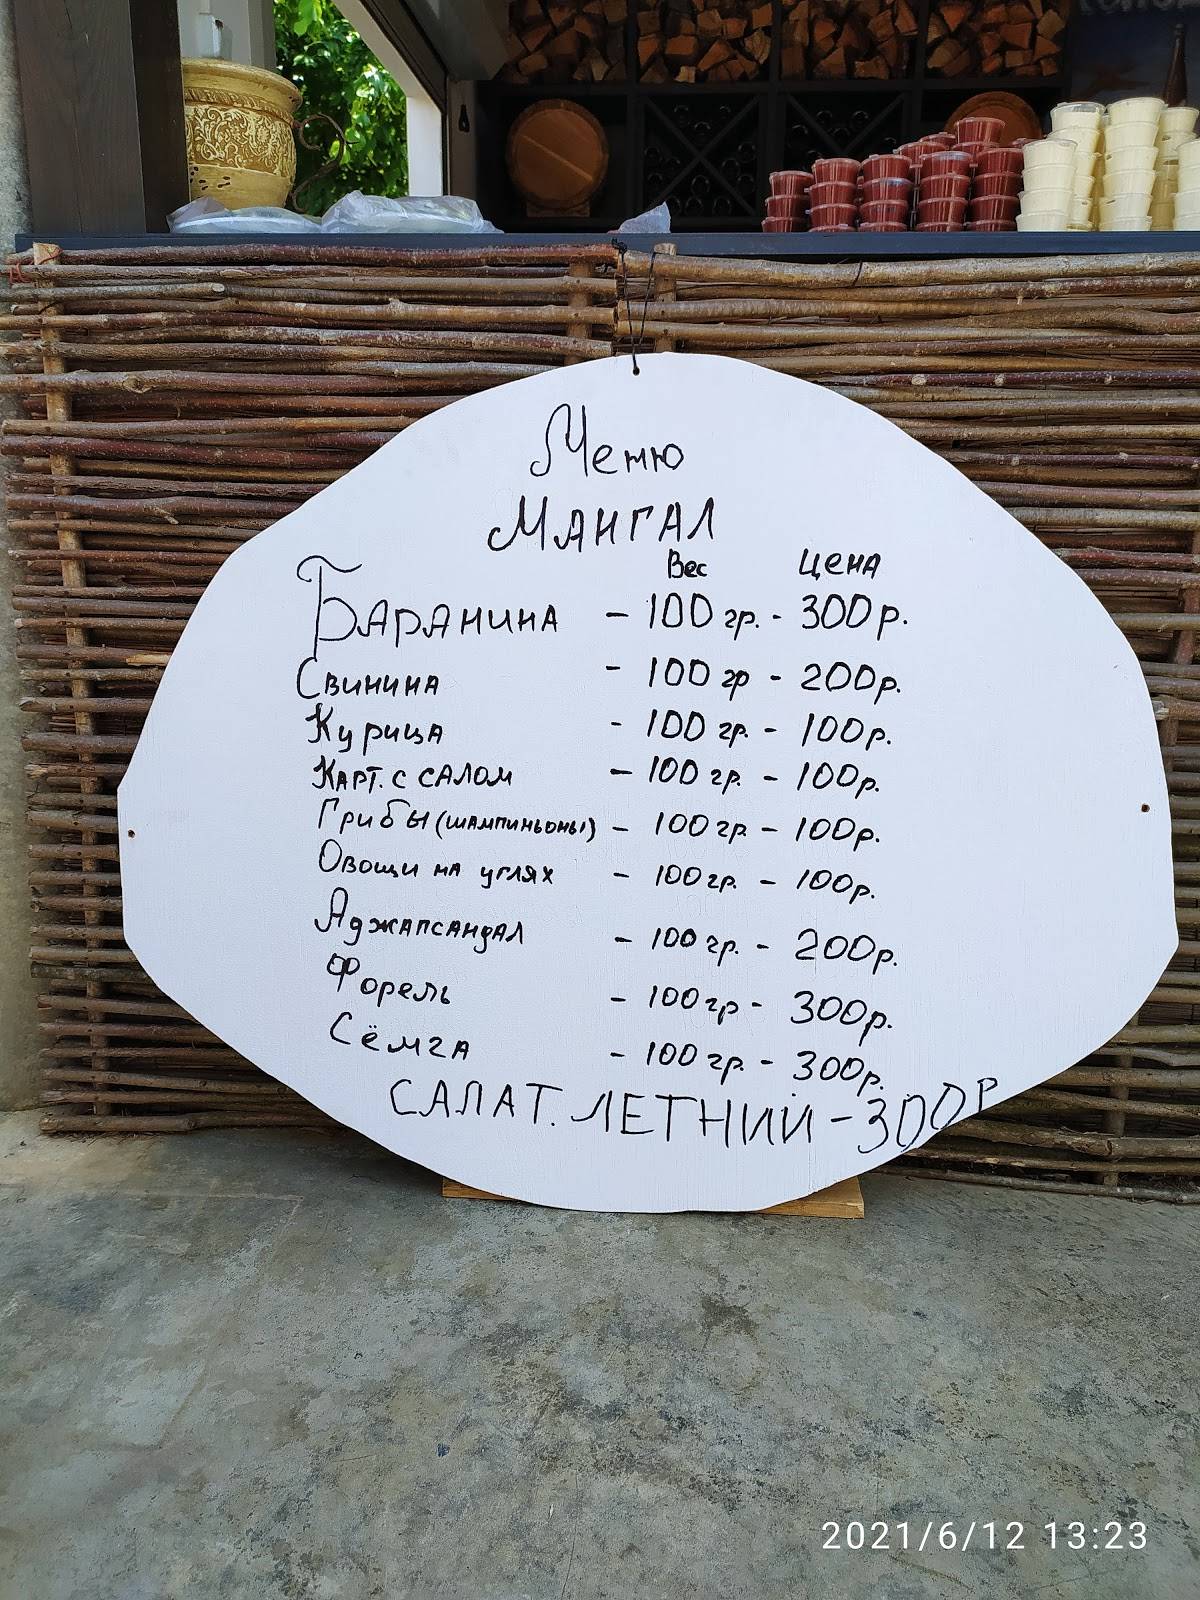 Меню
МАНГАЛ
Вес Цена
Баранина - 100 гр. - 300 р.
Свинина - 100 гр - 200р.
Курица - 100 гр. - 100р.
Карт. с салом - 100 гр. - 100р.
Грибы (шампиньоны) - 100 гр. - 100р.
Овощи на углях - 100 гр. - 100р.
Аджапсандал - 100 гр. - 200р.
Форель - 100 гр - 300р.
Сёмга - 100 гр. - 300р.
САЛАТ. ЛЕТНИЙ - 300Р
2021/6/12 13:23